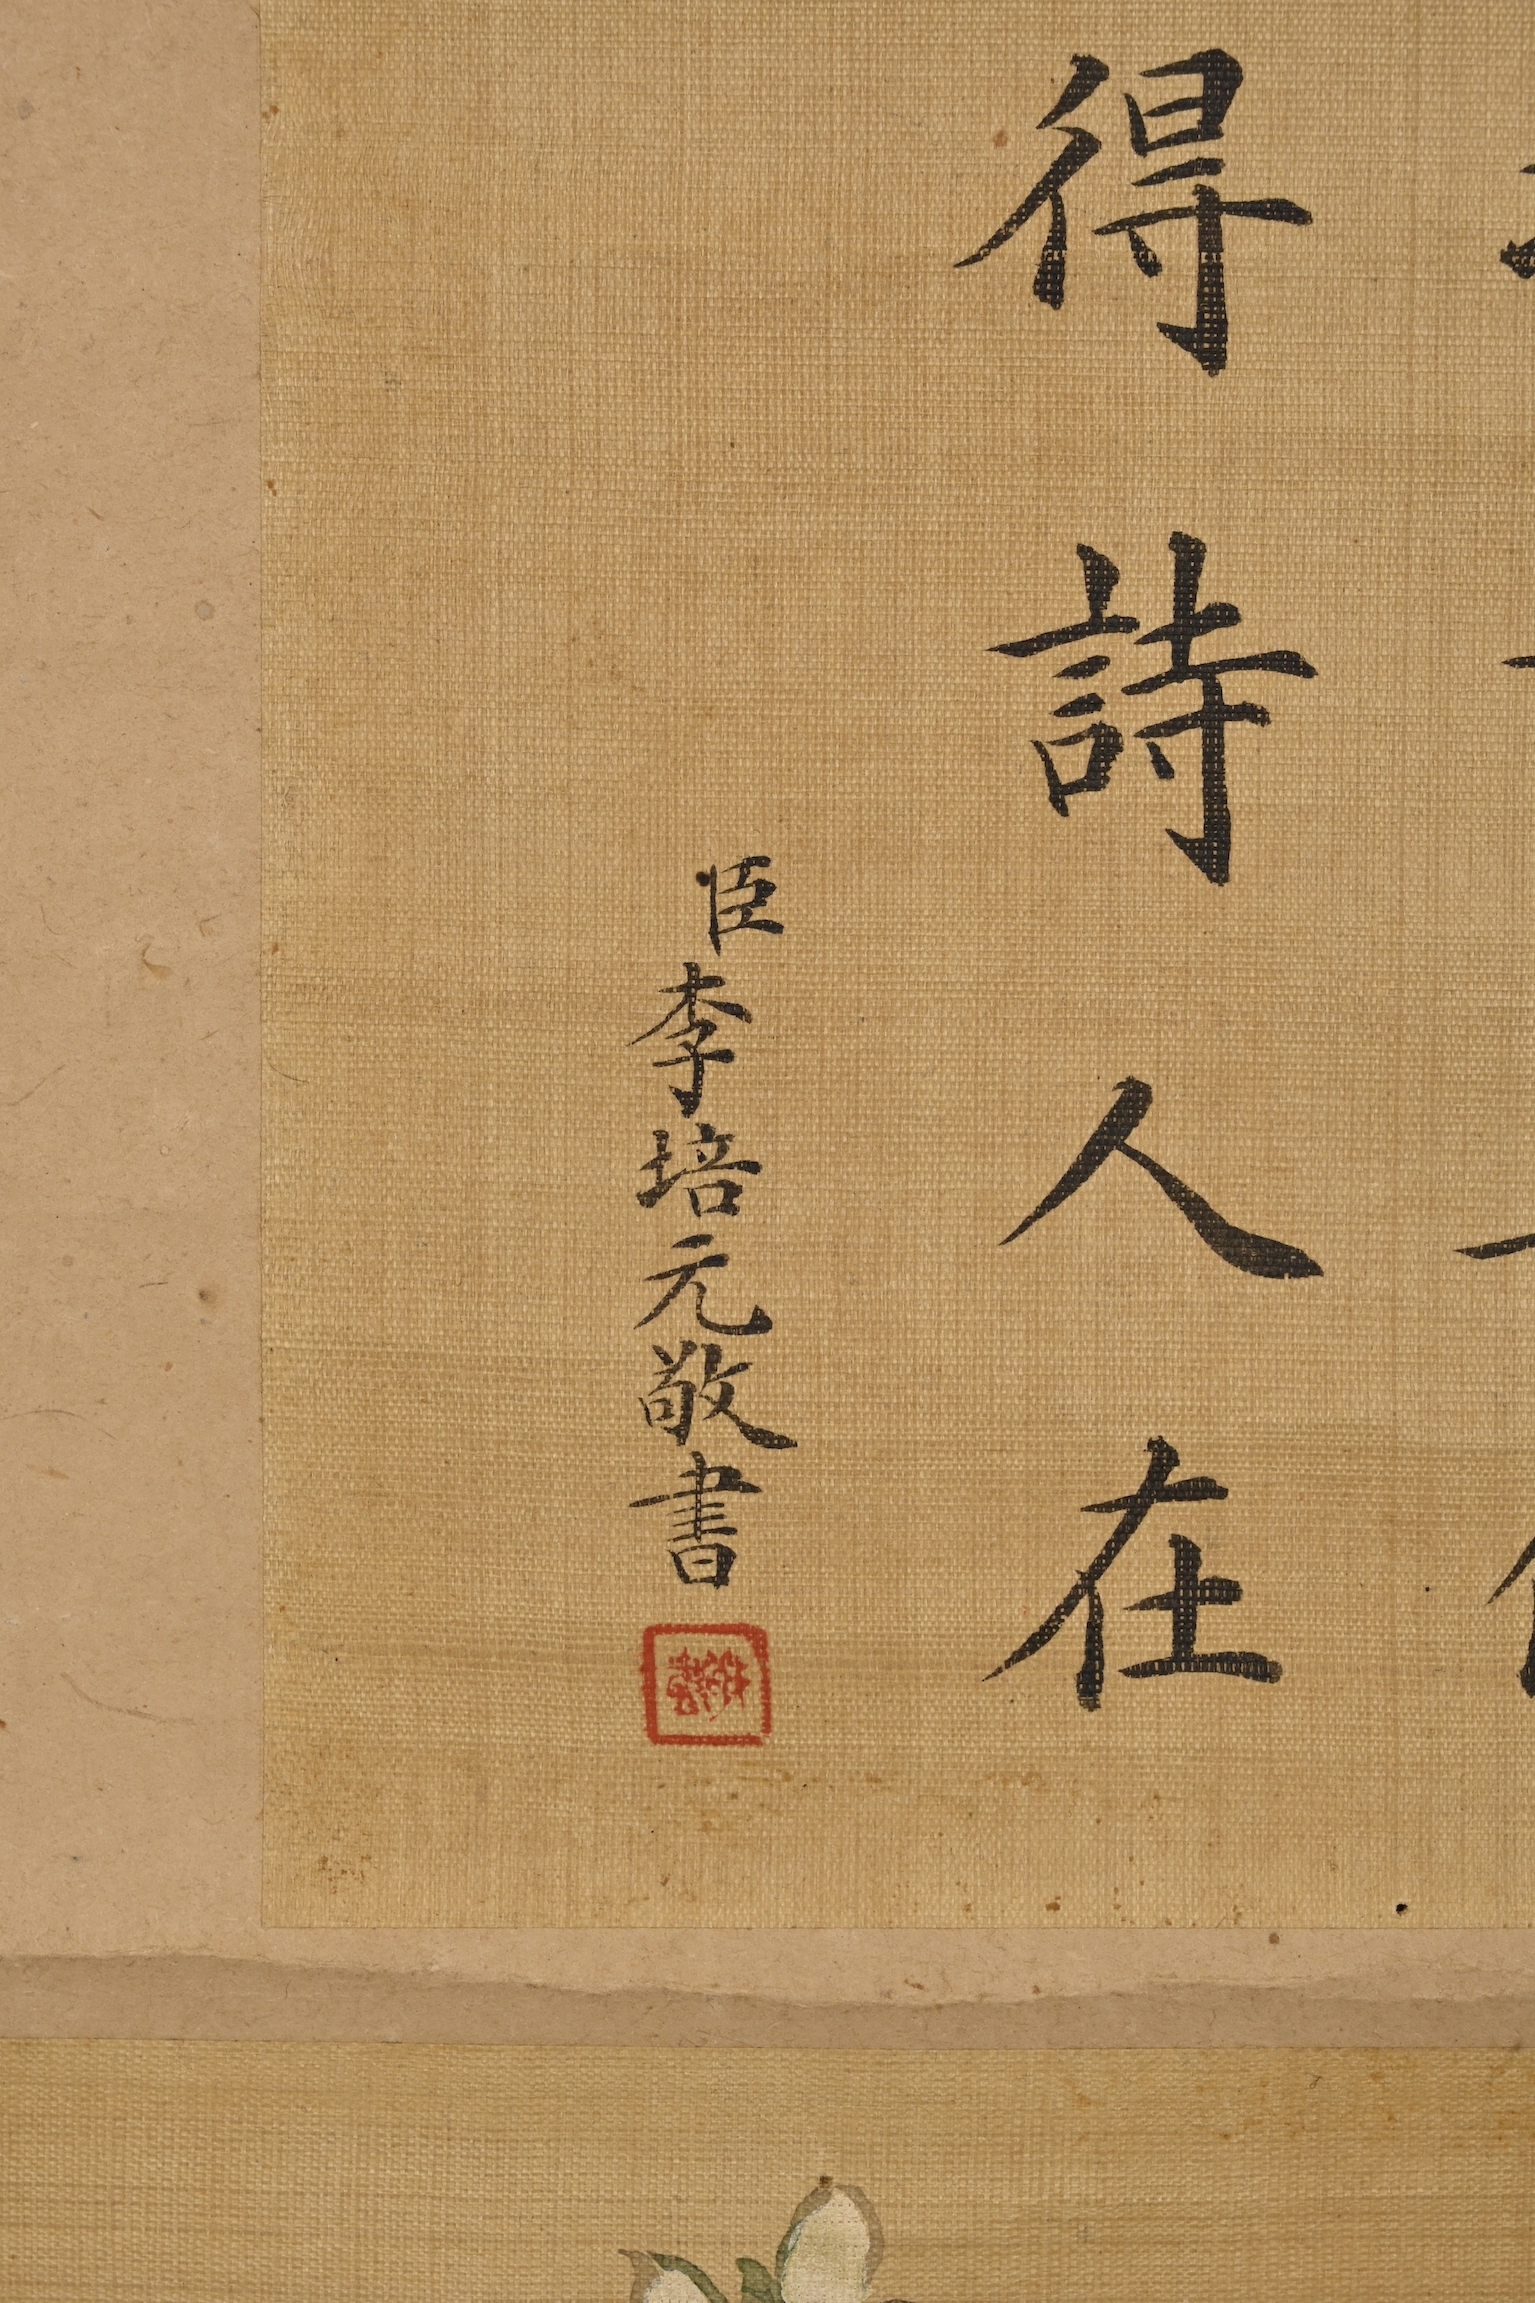 得詩人在
臣李培元敬書